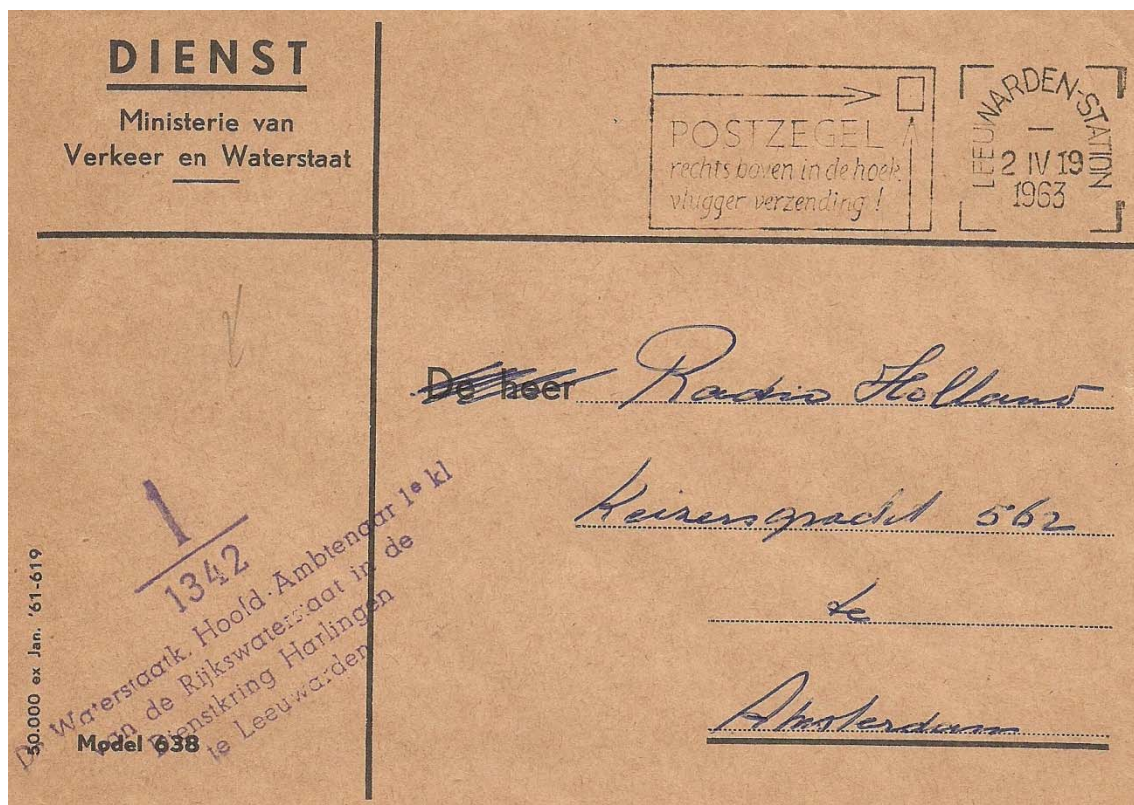 DIENST
Ministerie van
Verkeer en Waterstaat
POSTZEGEL
rechts boven in de hoek,
vlugger verzending!
LEEUWARDEN-STATION
2 IV 19
1963
De heer Radio Holland
Keizersgracht 562
te
Amsterdam
1
1342
De Waterstaatk. Hoofd-Ambtenaar 1e kl
van de Rijkswaterstaat in de
Dienstkring Harlingen
te Leeuwarden
50.000 ex Jan. '61-619
Model 638